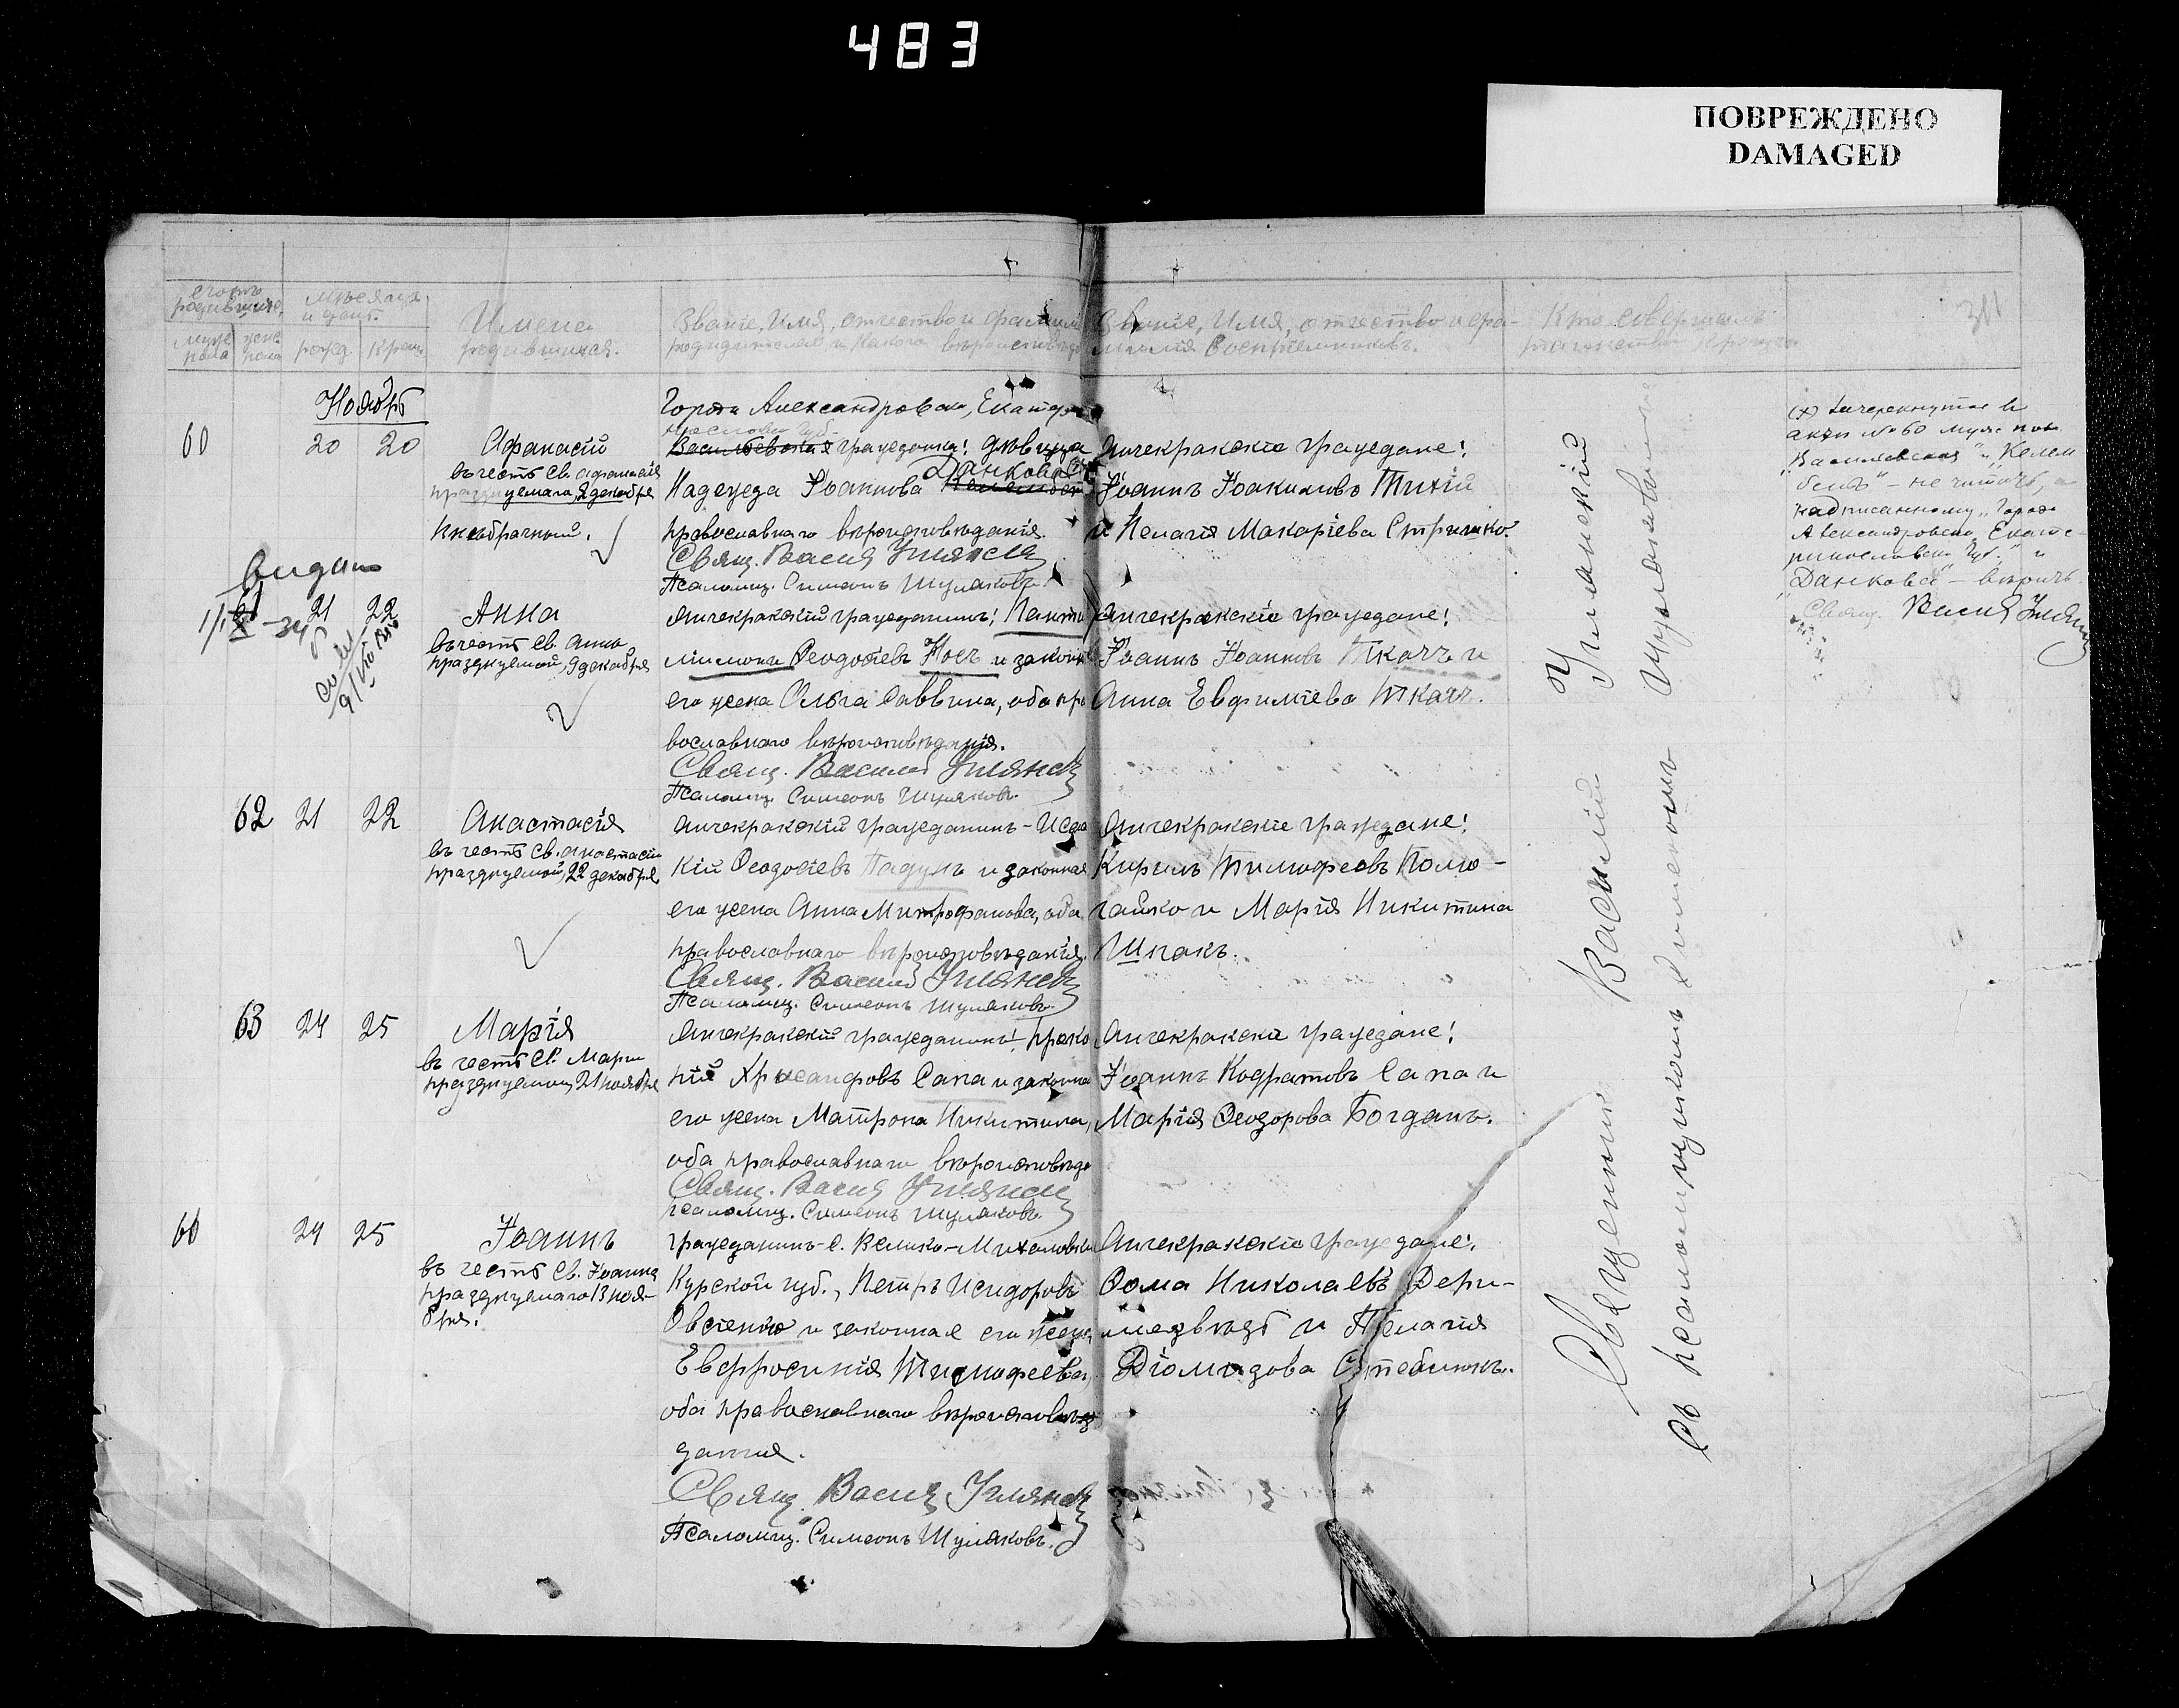 483
ПОВРЕЖДЕНО
DAMAGED
311
Счетъ родившихся.
Мѣсяцъ и день.
Имена родившихся.
Званіе, имя, отчество и фамилія
родителей и какого вѣроисповѣд
Званіе, имя, отчество и фа-
милія воспріемниковъ.
Кто совершалъ
таинство крещенія
муж. пола
жен. пола
рожд.
крещ.
Ноябрь
60
20
20
Афанасій
въ честь св. Афанасія
празднуемаго, 2 декабря
Внебрачный.
Города Александровска, Екатери
нославск. губ.
Васильевская гражданка: дѣвица
Данкова (х)
Надежда Іоаннова
православнаго вѣроисповѣданія.
Свящ. Василій Умянскій
Псаломщ. Симеонъ Шуляковъ
Анчекракскіе граждане:
Іоаннъ Іоакимовъ Тихій
и Пелагія Макаріева Стрижко.
(х) Зачеркнутое въ
актѣ № 60 муж. пола
"Васильевская" и "Келем
бетъ" – не читать, а
надписанному "Города
Александровска Екате-
ринославск. губ." и
"Данкова" – вѣрить.
Свящ. Василій Умянскій
видано
61
21
22
Анна
въ честь св. Анны
празднуемой, 9 декабря
Анчекракскій гражданинъ: Панте
лимонъ Ѳеодосіевъ Носъ и законная
его жена Ольга Саввина, оба пра
вославнаго вѣроисповѣданія.
Свящ. Василій Умянскій
Псаломщ. Симеонъ Шуляковъ.
Анчекракскіе граждане:
Іоаннъ Іоанновъ Ткачъ и
Анна Евфиміева Ткачъ.
62
21
22
Анастасія
въ честь св. Анастасіи
празднуемой, 22 декабря
Анчекракскій гражданинъ – Иса
кій Ѳеодосіевъ Падунъ и законная
его жена Анна Митрофанова, оба
православнаго вѣроисповѣданія.
Свящ. Василій Умянскій
Псаломщ. Симеонъ Шуляковъ.
Анчекракскіе граждане:
Кирилъ Тимофеевъ Помо-
гайко и Марія Никитина
Шпакъ.
63
24
25
Марія
въ честь св. Маріи
празднуемой, 21 ноября
Анчекракскій гражданинъ: Проко
пій Хрисанфовъ Сапа и законная
его жена Матрона Никитина,
оба православнаго вѣроисповѣда
Свящ. Василій Умянскій
Псаломщ. Симеонъ Шуляковъ.
Анчекракскіе граждане:
Іоаннъ Кодратовъ Сапа и
Марія Ѳеодорова Богданъ.
61
24
25
Іоаннъ
въ честь св. Іоанна
празднуемаго 13 ноя-
бря.
Гражданинъ с. Велико-Михаловки
Курской губ., Петръ Исидоровъ
Овсіенко и законная его жена
Евфросинія Тимофеева,
оба православнаго вѣроисповѣ
данія.
Свящ. Василій Умянскій
Псаломщ. Симеонъ Шуляковъ.
Анчекракскіе граждане:
Ѳома Николаевъ Дери-
медвѣдь и Пелагія
Діомидова Стеблюкъ.
Священникъ Василій Умянскій
съ псаломщикомъ Симеономъ Шуляковымъ